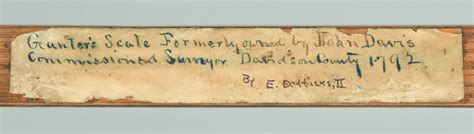 Gunter's Scale Formerly owned by John Davis
Commissioned Surveyor Davidson County 1792
By E. II